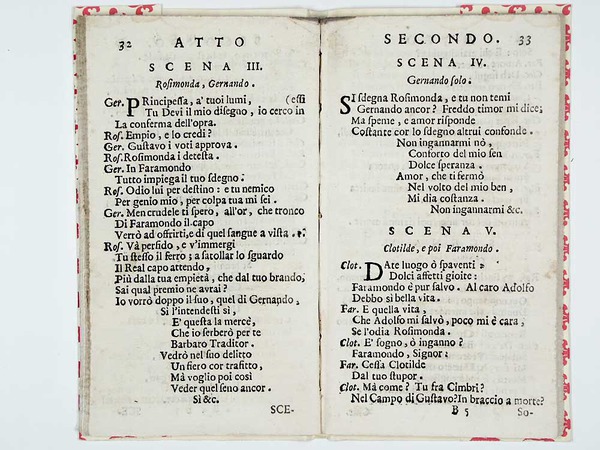 32 ATTO
SCENA III.
Rosimonda, Gernando.
Ger. PRincipessa, a' tuoi lumi, (essi
Tu Devi il mio disegno, io cerco in
La conferma dell'opra.
Ros. Empio, e lo credi?
Ger. Gustavo i voti approva.
Ros. Rosimonda i detesta.
Ger. In Faramondo
Tutto impiega il tuo sdegno.
Ros. Odio lui per destino: e tu nemico
Per genio mio, per colpa tua mi sei.
Ger. Men crudele ti spero, all'or, che tronco
Di Faramondo il capo
Verrò ad offrirti, e di quel sangue a vista.
Ros. Và perfido, e v'immergi
Tu stesso il ferro; a satollar lo sguardo
Il Real capo attendo,
Più dalla tua empietà, che dal tuo brando,
Sai qual premio ne avrai?
Io vorrò doppo il suo, quel di Gernando,
Sì l'intendesti sì,
E' questa la mercè,
Che io serberò per te
Barbaro Traditor.
Vedrò nel suo delitto
Un fiero cor trafitto,
Mà voglio poi così
Veder quel seno ancor.
Sì &c.
SCE-
SECONDO. 33
SCENA IV.
Gernando solo.
SI sdegna Rosimonda, e tu non temi
Gernando ancor? Freddo timor mi dice;
Ma speme, e amor risponde
Costante cor lo sdegno altrui confonde.
Non ingannarmi nò,
Conforto del mio sen
Dolce speranza.
Amor, che ti fermò
Nel volto del mio ben,
Mi dia costanza.
Non ingannarmi &c.
SCENA V.
Clotilde, e poi Faramondo.
Clot. DAte luogo ò spaventi,
Dolci affetti gioite:
Faramondo è pur salvo. Al caro Adolfo
Debbo sì bella vita.
Far. E quella vita,
Che Adolfo mi salvò, poco mi è cara,
Se l'odia Rosimonda.
Clot. E' sogno, ò inganno?
Faramondo, Signor:
Far. Cessa Clotilde
Dal tuo stupor.
Clot. Mà come? Tu fra Cimbri?
Nel Campo di Gustavo? In braccio a morte?
B 5 So-